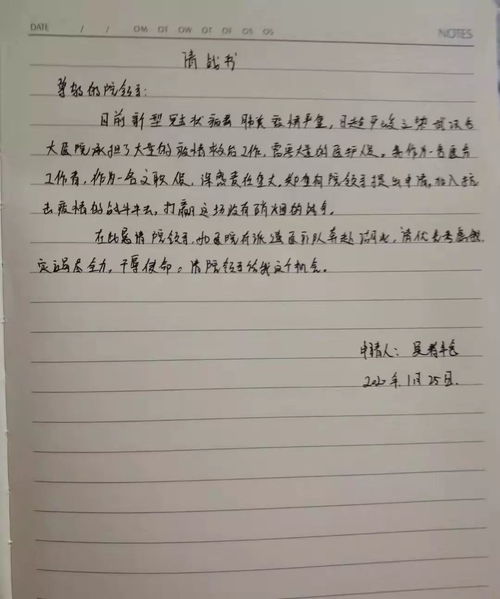 DATE / / MO TU WE TH FR SA SU NOTES
请战书
尊敬的院领导:
目前新型冠状病毒肺炎疫情严重,日趋严峻之势 武汉各
大医院承担了大量的疫情救治工作,需要大量的医护人员。我作为一名医务
工作者,作为一名文职人员,深感责任重大,现向院领导提出申请,加入抗
击疫情的战斗中去,打赢这场没有硝烟的战争。
在此恳请院领导,如医院有派遣医疗队奔赴湖北,请优先考虑我
定竭尽全力,不辱使命。请院领导给我这个机会。
申请人:
2020年1月25日.